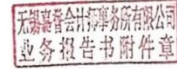 无锡嘉誉会计师事务所有限公司
业务报告书附件章